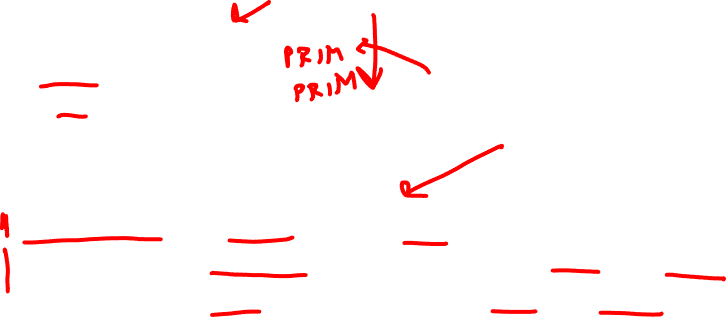 PRIM
PRIM